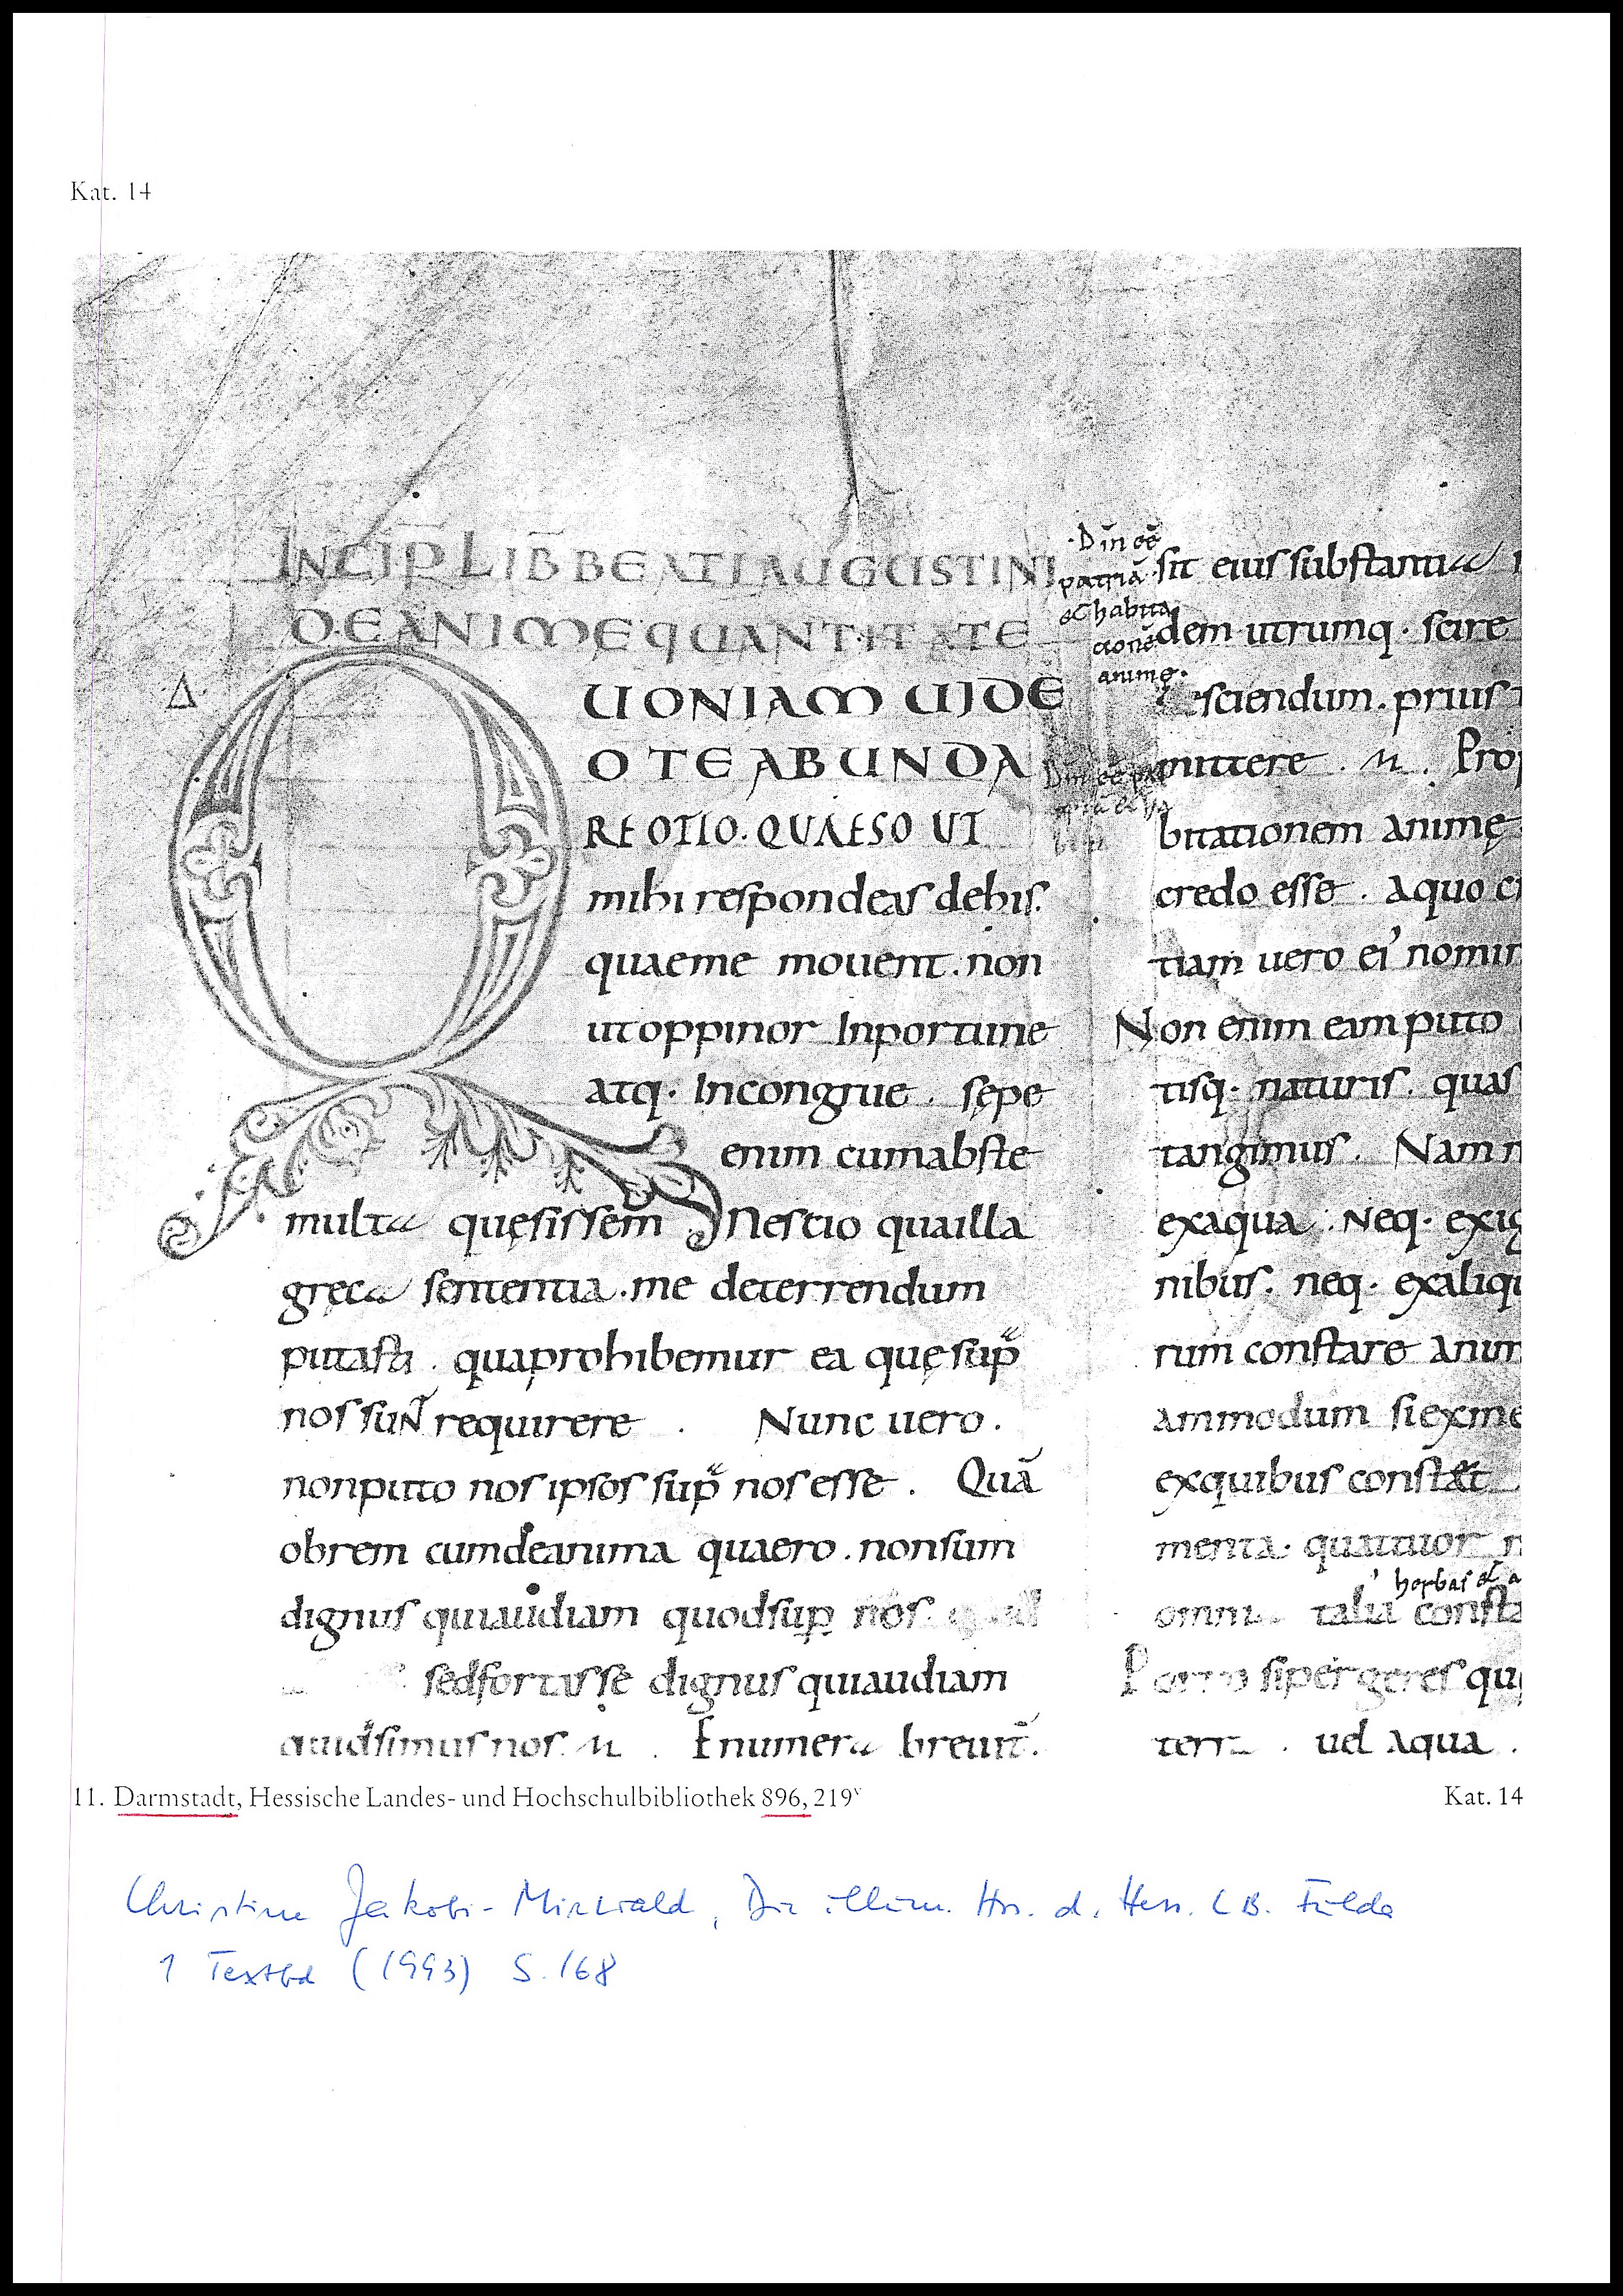 Kat. 14
INCIP LIB BEATI AUGUSTINI
DE ANIME QUANTITATE
Δ
QUONIAM UIDE
O TE ABUNDA
RE OTIO. QUAESO UT
mihi respondeas dehis.
quaeme mouent. non
utoppinor Inportune
atq. Incongrue. sępe
enim cumabste
multa quęsissem Nescio quailla
gręca sententia. me deterrendum
putasti. quaprohibemur ea quę sup̄
nos sunt̄ requirere. Nunc uero.
nonputo nos ipsos sup̄ nos esse. Quā
obrem cumdeanima quaero. nonsum
dignus quiaudiam quodsup nos.
sedfortasse dignus quiaudiam
quidsimus nos. Enumera breuit̄.
·Din̄ eē
patriā
et habita
tionē
animę·
sit eius substantia
dem utrumq· scire
sciendum. prius
mittere. Pro
bitationem animę
credo esse. aquo
tiam uero ei' nomin
Non enim eam puto
tisq· naturis. quas
tangimus. Nam
exaqua. Neq· exig
nibus. neq· exaliqu
rum constare anim
ammodum siexme
exquibus constat
menta. quattuor
herbas et a
omni talia consta
Porro sipergeres qu
terra. uel aqua.
11. Darmstadt, Hessische Landes- und Hochschulbibliothek 896, 219v
Kat. 14
Christine Jakobi-Mirwald, Die illum. Hss. d. Hess. LB. Fulda
1 Textbd (1993) S. 168